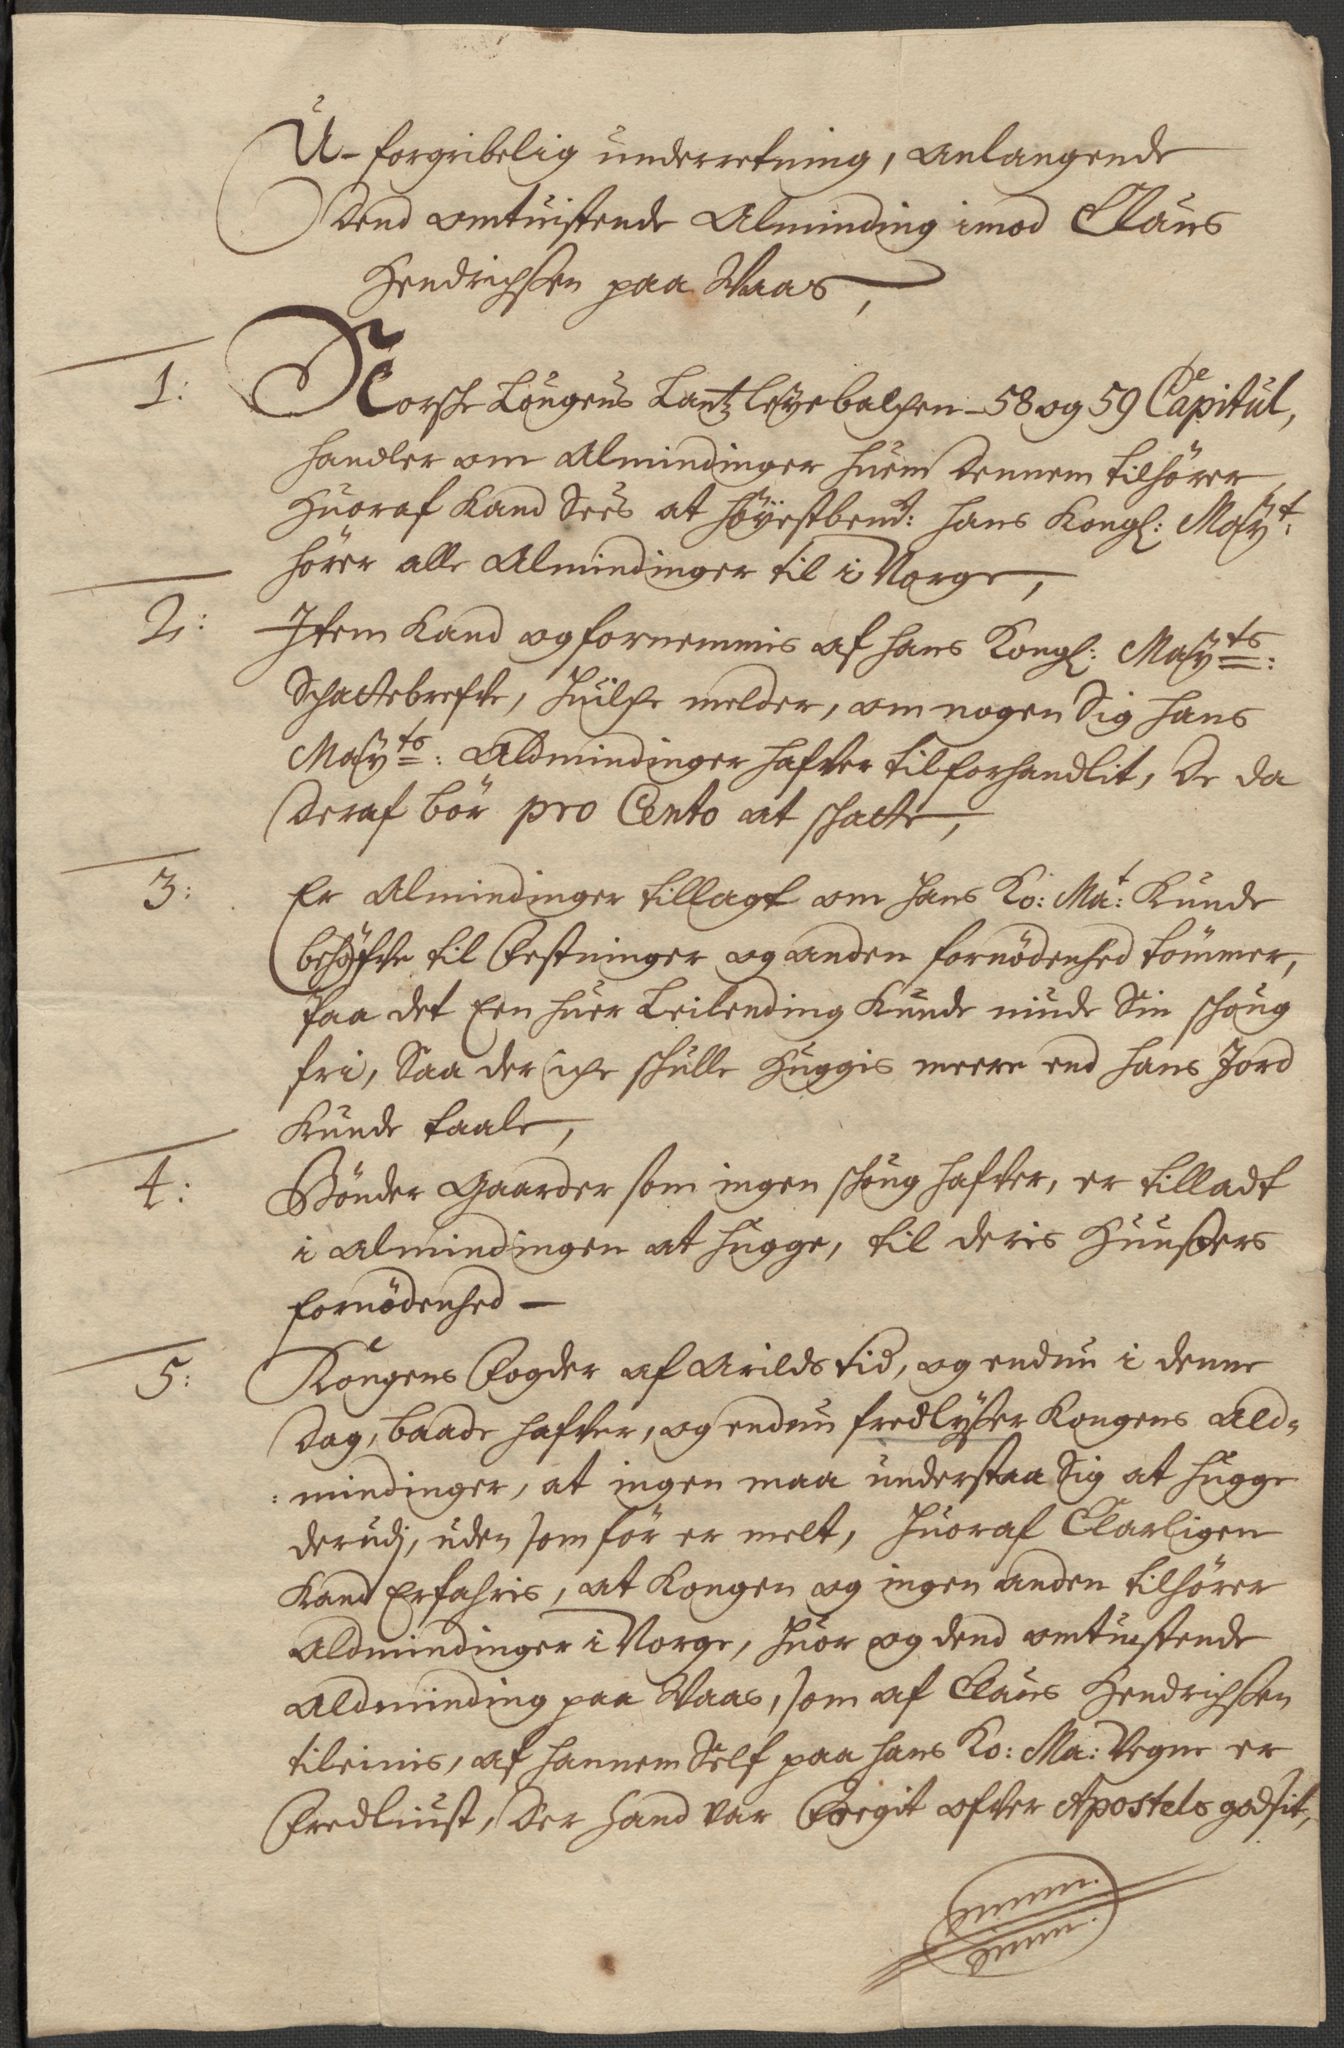 U-forgribelig underretning, anlangende
Dend omtuistende Alminding imod Claus
Hendrichsen paa Waas,
1: Norsche Lougens Lantz leyebalchen 58 og 59 Capitul,
handler om Almindinger huem dennem tilhører
Huoraf Kand Sees at høyestbemt: hans Kongl: Mayt:
hører alle Almindinger til i Norge,
2: Item Kand og fornemmis af hans Kongl: Mayts:
Schattebrefve, huilche melder, om nogen Sig hans
Mayts: Aldmindinger hafver tilforhandlit, De da
deraf bør pro Cento at schatte,
3: Er Almindinger tillagt om hans Ko: Mat: Kunde
behøfve til Festninger og anden fornødenhed tømmer,
Paa det Een huer Leilending Kunde niude Sin schoug
fri, Saa der iche schulle Huggis meere end hans Jord
Kunde taale,
4: Bønder Gaarder som ingen schoug hafver, er tilladt
i almindingen at hugge, til deris Huusers
fornødenhed —
5: Kongens Fogder af Arilds tid, og endnu i denne
Dag, baade hafver, og endnu fredlyser Kongens Ald=
=mindinger, at ingen maa understaa Sig at hugge
derudj, uden som før er melt, huoraf Clarligen
Kand Erfahris, at Kongen og ingen anden tilhører
Aldmindinger i Norge, huor og dend omtuistende
Aldminding paa Waas, som af Claus Hendrichsen
tileinis, af hannem Self paa hans Ko: Ma: Vegne er
Fredliust, Der hand var Foegit ofver Apostels godsit,